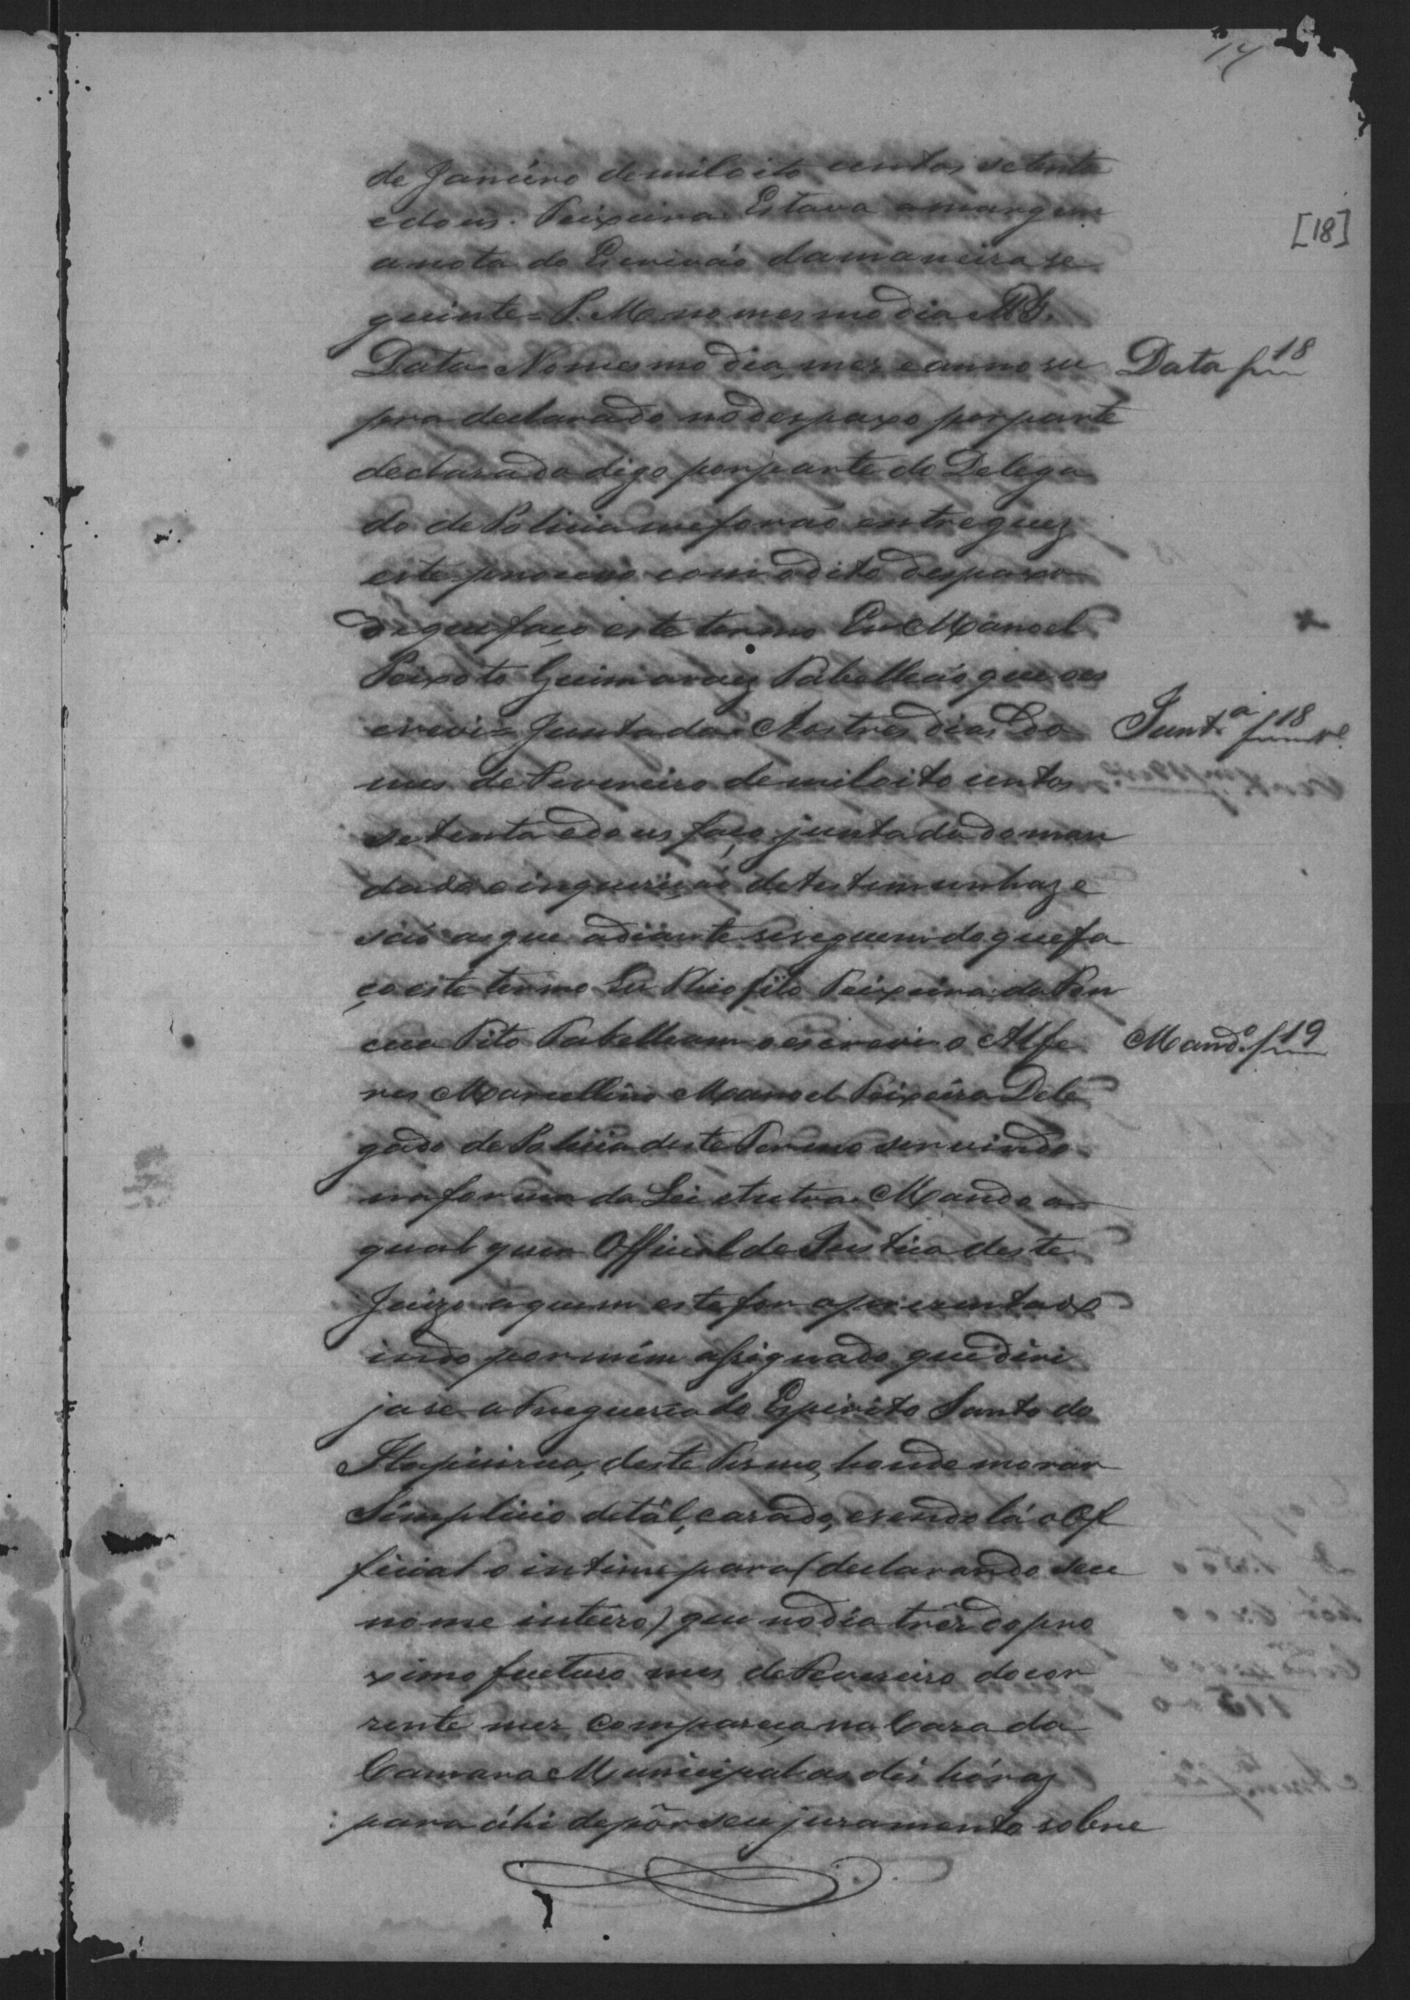 14
[18]
de Janeiro demiloito centos setenta
edous. Teixeira. Estava amargem
anota do Escrivão damaneira se
guinte = P. M. nomesmodia
Data Nomesmodia, mez eanno su
Data f 18
pra declarado nodespaxo porparte
declarada digo porparte do Delega
do de Policia meforão entregues
este processo com odito despaxo
Dequefaço este termo Eu Manoel
Peixoto Guimaraez Tabelleão que oes
crevi = Juntada = Aos tres dias do
Junt.ª f 18 v.
mes de Fevereiro demiloito centos
setenta edous faço juntada doman
dado einquerição detestemunhaz e
são asque adiante seseguem doquefa
ço este termo Eu Theofilo Teixeira da Fon
ceca Pito Tabelleam oescrevi = O Alfe
Mand.º f 19
res Marcellino Manoel Teixeira Dele
gado de Policia deste Termo servindo
naforma da Lei etcetra. Mando a
qual quer Official de Justica deste
Juizo aquem este for apresentado
indo pormim assignado, quediri
jase a Freguezia do Espirito Santo do
Itapicirica, deste Termo, honde morar
Simplicio detál, casado, esendo lá o Of
ficial o intime para (declarando seu
nome inteiro) que nodia três dopro
ximo fucturo mes de Fevereiro docor
rente mez compareça na Caza da
Camara Municipal as dés hóras
para áhi depôr seu juramento sobre